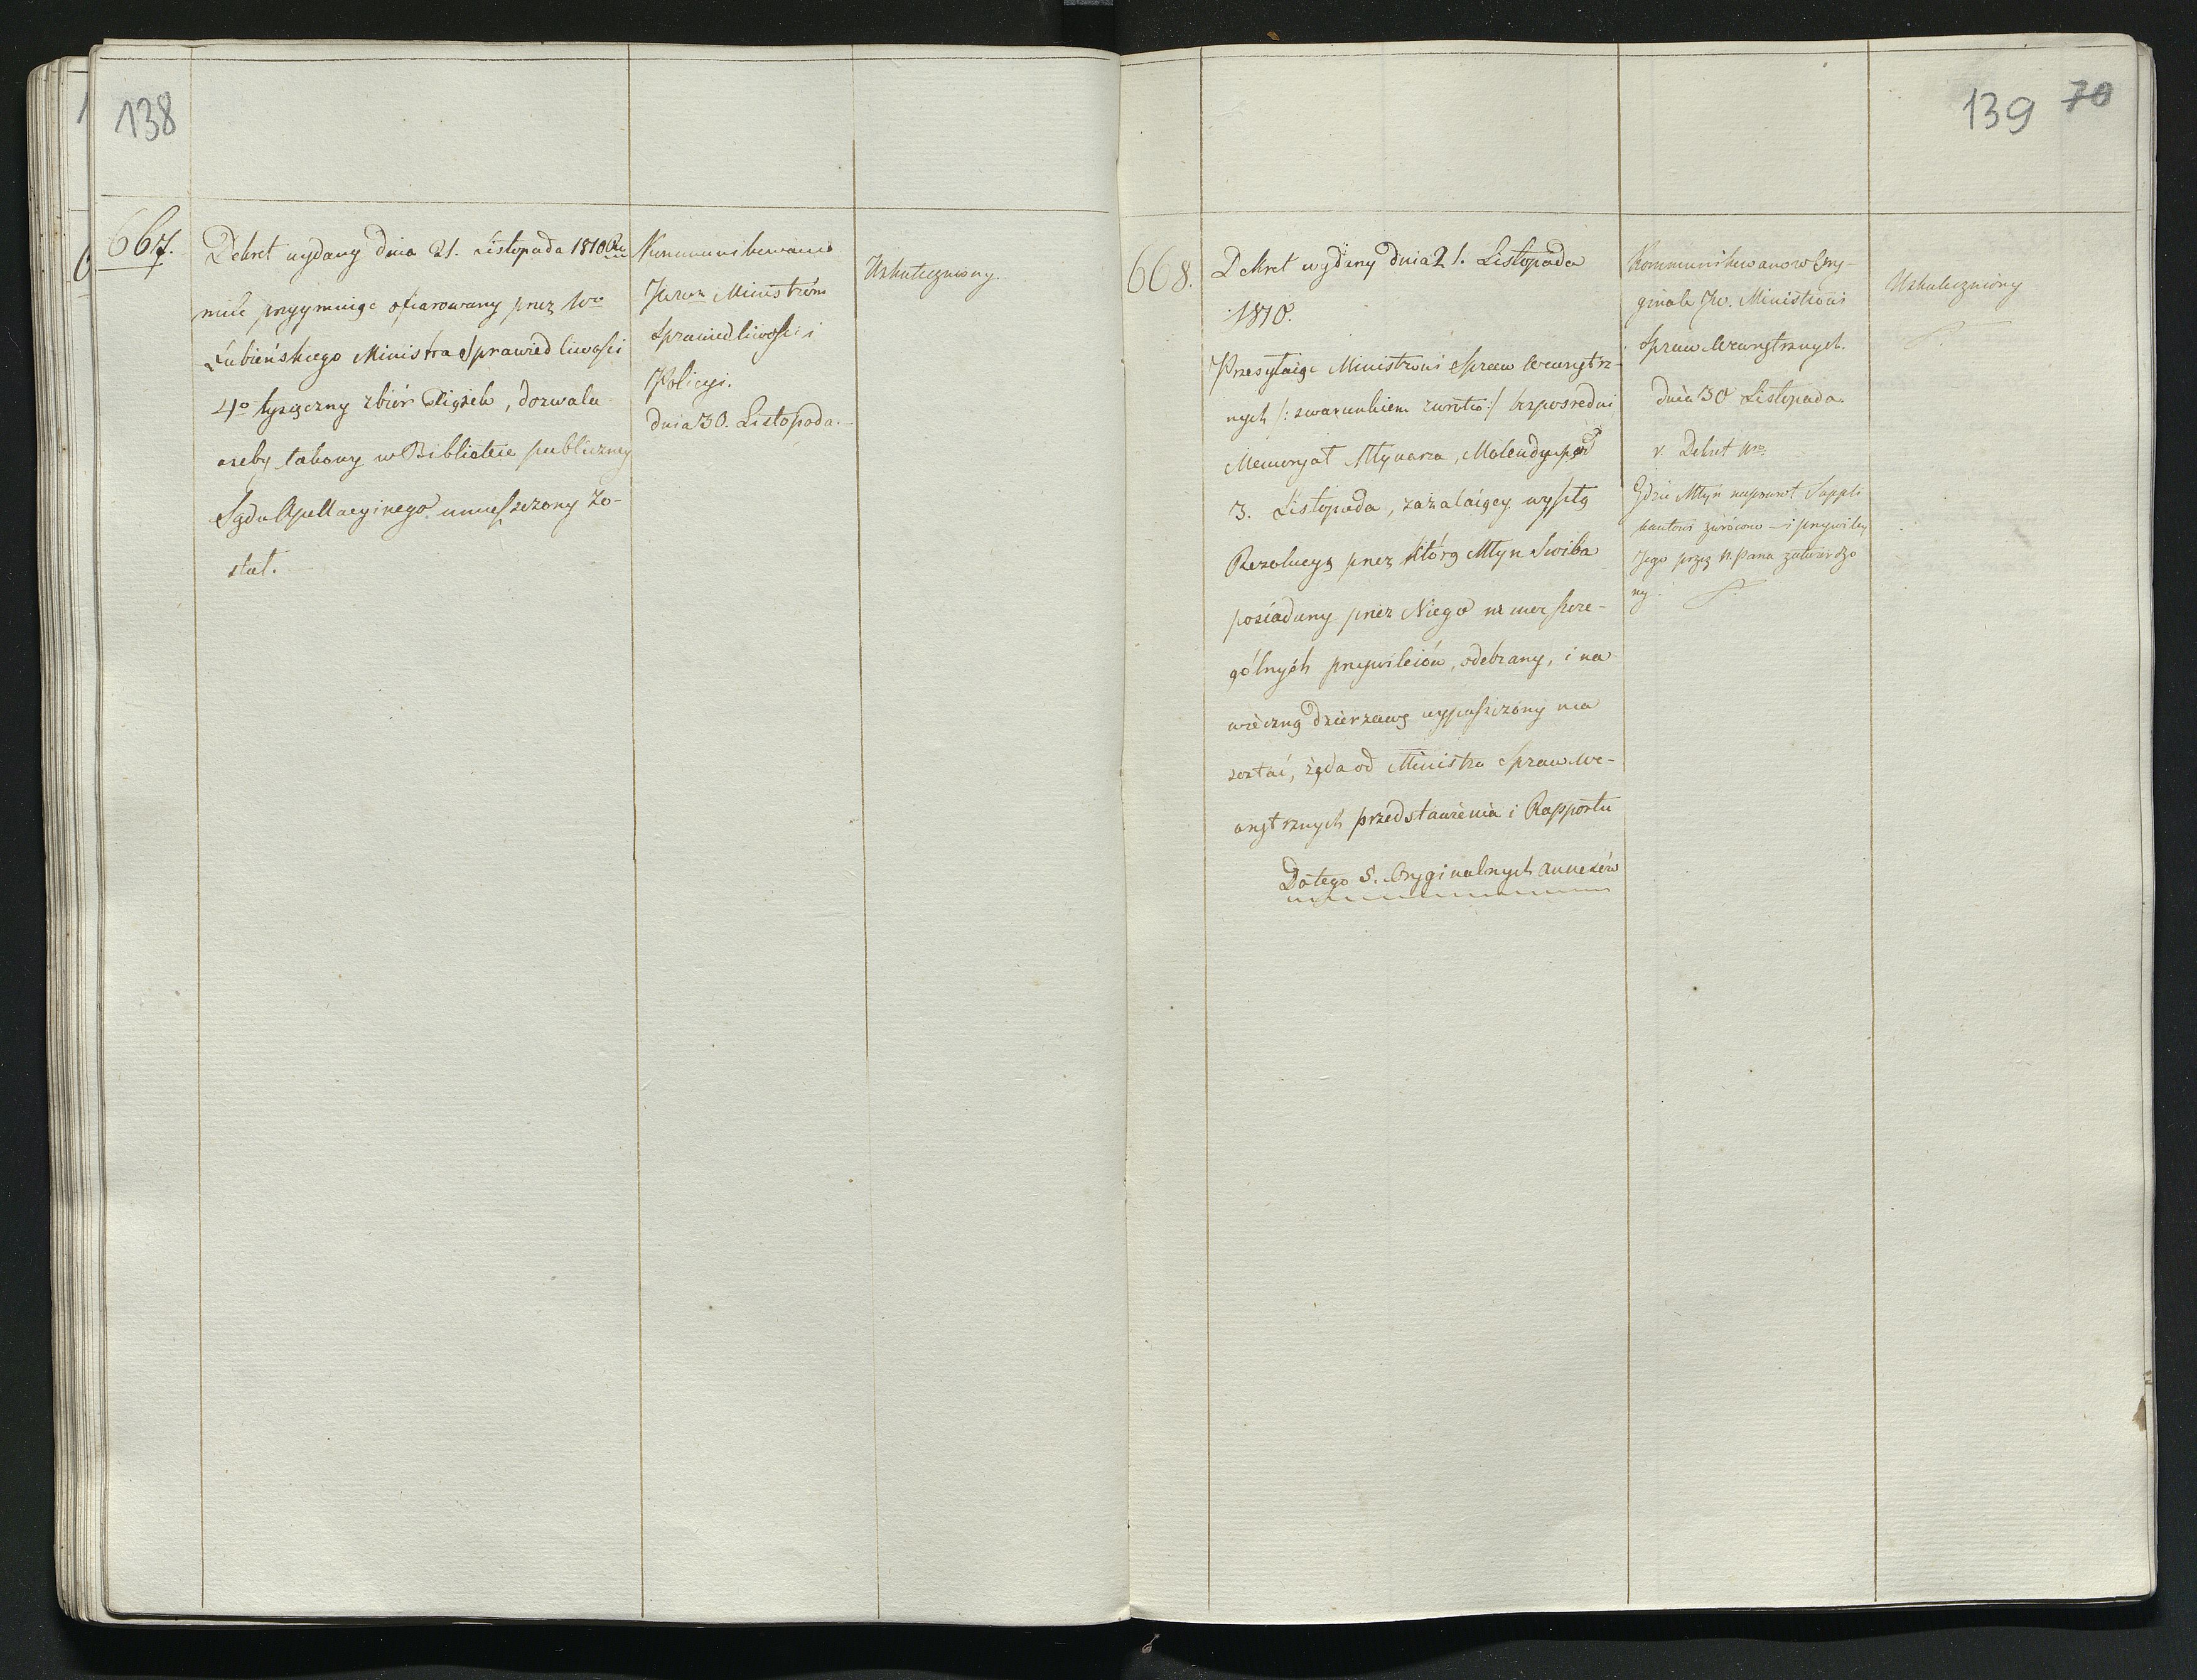 138
667.
Dekret wydany dnia 21. Listopada 1810 Ru
mile przyymuiąc ofiarowany przez Wo
Łubieńskiego Ministra Sprawiedliwości
4o tysięczny zbiór Xiążek, dozwala
ażeby takowy w Bibliotece publiczney
Sądu Apellacyinego umieszczony zo-
stał.
Kommunikowano
JWm Ministróm
Sprawiedliwości i
Policyi.
dnia 30. Listopada.
Uskuteczniony.
139 70
668.
Dekret wydany dnia 21. Listopada
1810.
Przesyłaiąc Ministrowi Spraw Wewnętrz-
nych /: z warunkiem zwrotu :/ bezpośredni
Memoryał Młynarza, Molendy pod
3. Listopada, zażalaiącey wyszłą
Rezolucyą przez którą Młyn Swiba
posiadany przez Niego na mocy szcze-
gólnych przywileiów, odebrany, i na
wieczną dzierzawę wypuszczony ma
zostać, żąda od Ministra Spraw We-
wnętrznych przedstawienia i Rapportu
Do tego 8. Oryginalnych annexów
Kommunikowano w Ory-
ginale JW. Ministrowi
Spraw Wewnętrznych.
dnia 30 Listopada.
v. Dekret Nro
Gdzie Młyn napowrot Suppli-
kantowi zwrócono – i przywiley
Jego przez N. Pana zatwierdzo
ny.
Uskuteczniony